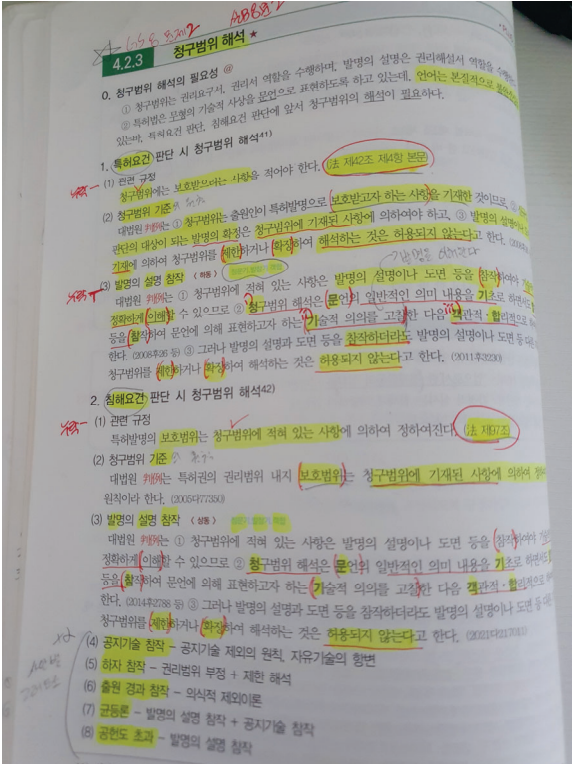 4.2.3 청구범위 해석 ★
0. 청구범위 해석의 필요성 @
① 청구범위는 권리요구서, 권리서 역할을 수행하며, 발명의 설명은 권리해설서 역할을 수행하면
② 특허법은 무형의 기술적 사상을 문언으로 표현하도록 하고 있는데, 언어는 본질적으로
있는바, 특허요건 판단, 침해요건 판단에 앞서 청구범위의 해석이 필요하다.
1. 특허요건 판단 시 청구범위 해석41)
(1) 관련 규정
청구범위에는 보호받으려는 사항을 적어야 한다. (法 제42조 제4항 본문)
(2) 청구범위 기준
대법원 判例는 ① 청구범위는 출원인이 특허발명으로 보호받고자 하는 사항을 기재한 것이므로, ②
판단의 대상이 되는 발명의 확정은 청구범위에 기재된 사항에 의하여야 하고, ③ 발명의 설명이나
기재에 의하여 청구범위를 제한하거나 확장하여 해석하는 것은 허용되지 않는다고 한다.
(3) 발명의 설명 참작 〈하동〉
대법원 判例는 ① 청구범위에 적혀 있는 사항은 발명의 설명이나 도면 등을 참작하여야
정확하게 이해할 수 있으므로 ② 청구범위 해석은 문언의 일반적인 의미 내용을 기초로 하면서도
등을 참작하여 문언에 의해 표현하고자 하는 기술적 의의를 고찰한 다음 객관적·합리적으로
한다. (2006후26 등) ③ 그러나 발명의 설명과 도면 등을 참작하더라도 발명의 설명이나 도면 등 다른
청구범위를 제한하거나 확장하여 해석하는 것은 허용되지 않는다고 한다. (2011후3230)
2. 침해요건 판단 시 청구범위 해석42)
(1) 관련 규정
특허발명의 보호범위는 청구범위에 적혀 있는 사항에 의하여 정하여진다. (法 제97조)
(2) 청구범위 기준
대법원 判例는 특허권의 권리범위 내지 보호범위는 청구범위에 기재된 사항에 의하여
원칙이라 한다. (2005다77350)
(3) 발명의 설명 참작 〈상동〉
대법원 判例는 ① 청구범위에 적혀 있는 사항은 발명의 설명이나 도면 등을 참작하여야
정확하게 이해할 수 있으므로 ② 청구범위 해석은 문언의 일반적인 의미 내용을 기초로 하면서도
등을 참작하여 문언에 의해 표현하고자 하는 기술적 의의를 고찰한 다음 객관적·합리적으로
한다. (2014후2788 등) ③ 그러나 발명의 설명과 도면 등을 참작하더라도 발명의 설명이나 도면 등
청구범위를 제한하거나 확장하여 해석하는 것은 허용되지 않는다고 한다.
(4) 공지기술 참작 – 공지기술 제외의 원칙, 자유기술의 항변
(5) 하자 참작 – 권리범위 부정 + 제한 해석
(6) 출원 경과 참작 – 의식적 제외이론
(7) 균등론 – 발명의 설명 참작 + 공지기술 참작
(8) 공헌도 초과 – 발명의 설명 참작